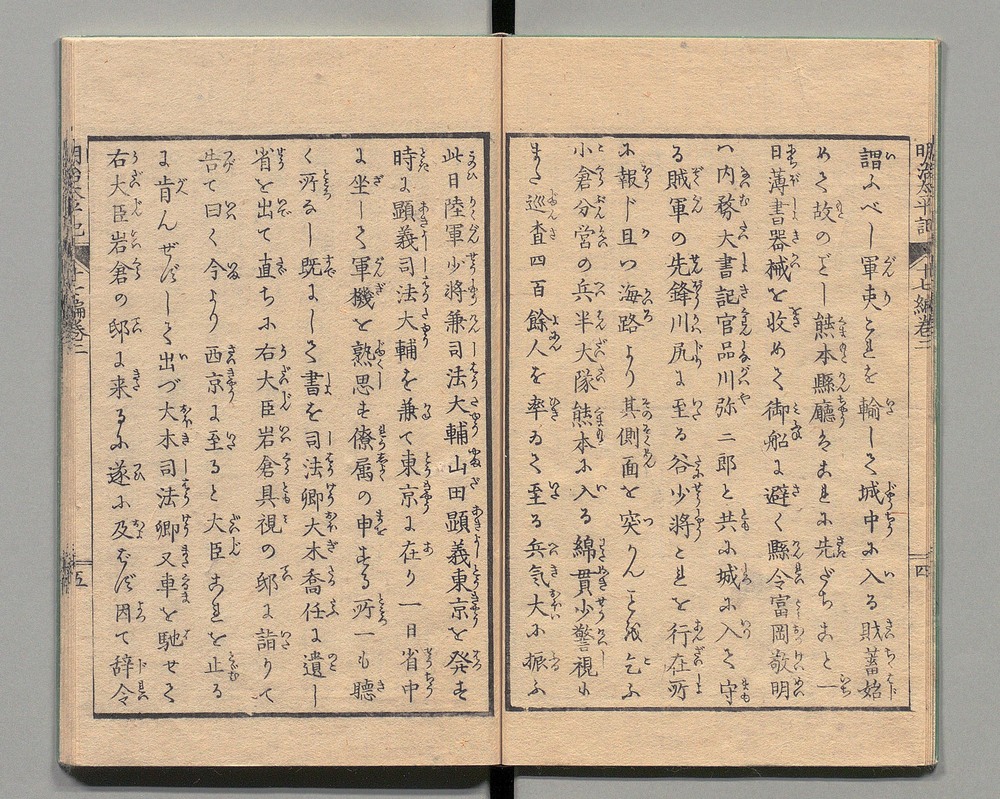 明治太平記 十七編巻二 四
謂ふべし軍吏これを輸して城中に入る財蓄始
めて故のごとし熊本縣廳はこれに先だちこと一
日薄書器械を收めて御船に避く縣令富岡敬明
ハ内務大書記官品川弥二郎と共に城に入て守
る賊軍の先鋒川尻に至る谷少将これを行在所
に報じ且つ海路より其側面を突かんことを乞ふ
小倉分営の兵半大隊熊本に入る綿貫少警視も
また巡査四百餘人を率ゐて至る兵気大に振ふ
此日陸軍少将兼司法大輔山田顕義東京を発す
時に顕義司法大輔を兼て東京に在り一日省中
に坐して軍機を熟思す僚属の申する所一も聴
く所なし既にして書を司法卿大木喬任に遺し
省を出て直ちに右大臣岩倉具視の邸に詣りて
告て曰く今より西京に至ると大臣これを止る
に肯んぜずして出づ大木司法卿又車を馳せて
右大臣岩倉の邸に来るに遂に及ばず因て辞令
明治太平記 十七編巻二 五